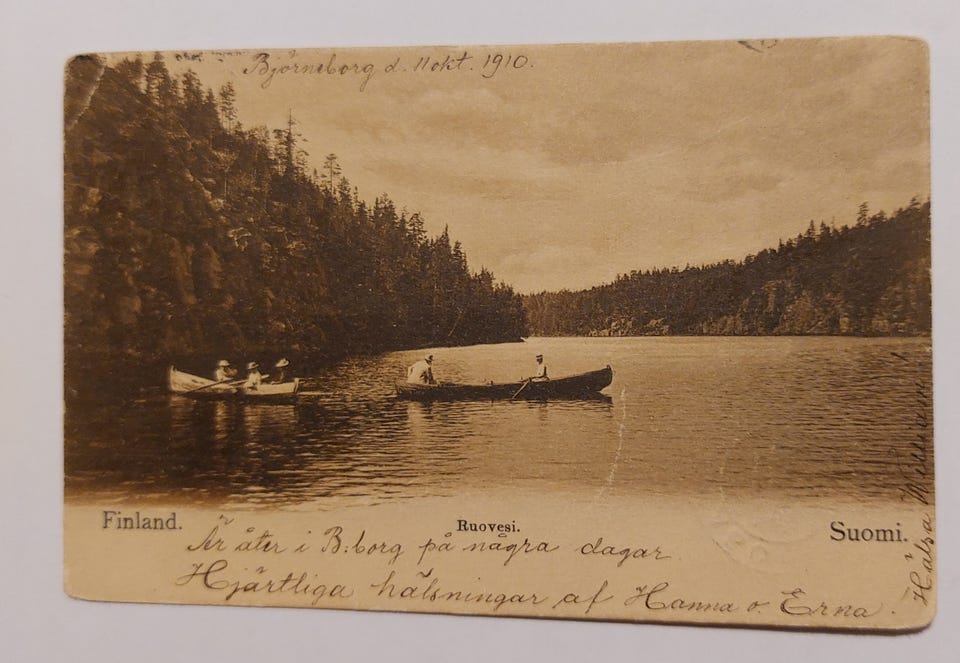 Björneborg d. 11 okt. 1910.
Finland.
Ruovesi.
Suomi.
Är åter i B:borg på några dagar
Hjärtliga hälsningar af Hanna o. Erna.
Hälsa